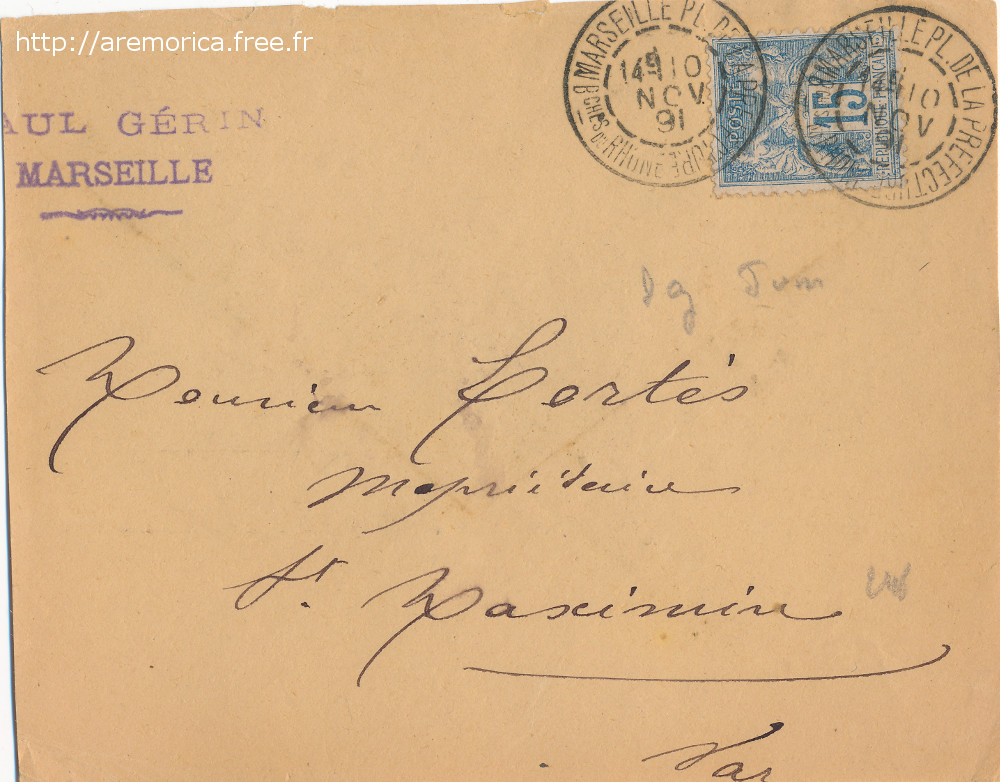 http://aremorica.free.fr
AUL GÉRIN
MARSEILLE
MARSEILLE PL. DE LA PREFECTURE
14 10
NOV
91
BCHES DU RHONE
POSTE
15
REPUBLIQUE FRANÇAISE
MARSEILLE PL. DE LA PREFECTURE
10
NOV
Monsieur Cortès
propriétaire
St. Maximin
Var